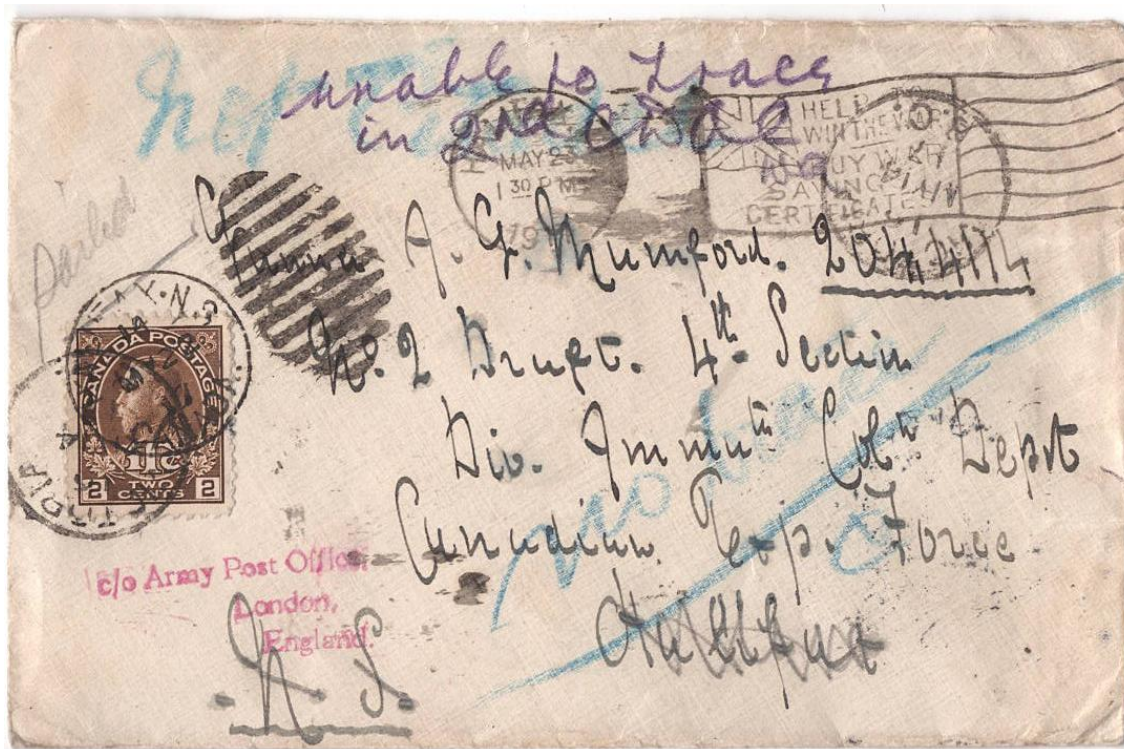 unable to trace
in 2nd CDAC
MAY 23
1 30 PM
HELP TO
WIN THE WAR
BUY WAR
SAVINGS
CERTIFICATES
Sailed
A. G. Mumford. 2044114
No. 2 Draft. 4th Section
Div. Ammntn Coln Dept
Canadian Exp. Force
Halifax
N. S.
No trace
CANADA POSTAGE
2 TWO CENTS 2
c/o Army Post Office,
London,
England.